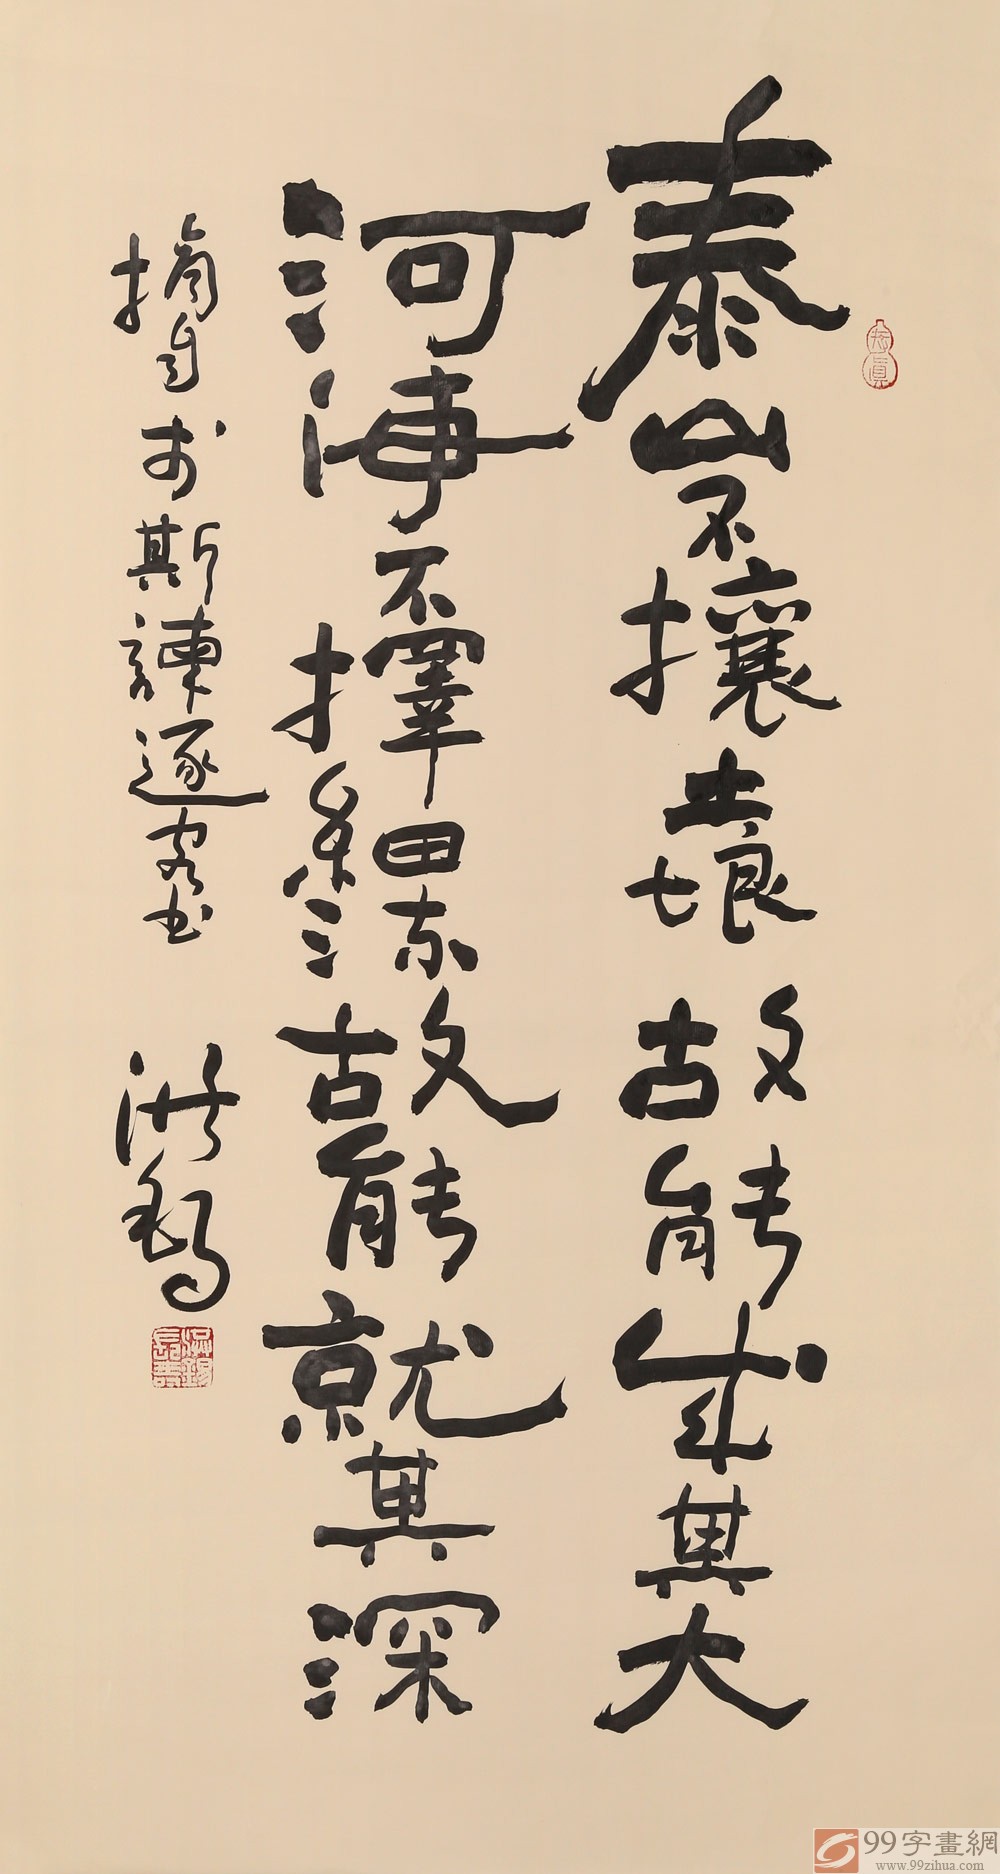 泰山不攘土壤故能成其大
河海不擇細流故能就其深
摘自斯諫逐客书
洪
99字畫網
www.99zihua.com